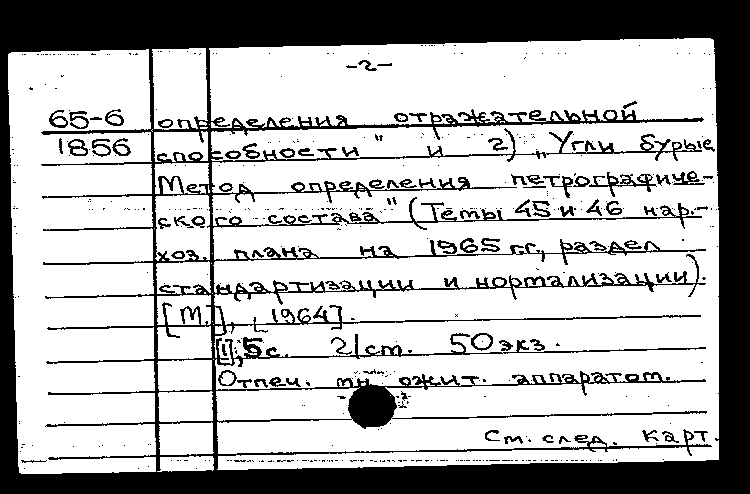 -2-
65-6 определения отражательной
1856 способности" и 2) „Угли бурые
Метод определения петрографиче-
ского состава" (Темы 45 и 46 нар.-
хоз. плана на 1965 гг., раздел
стандартизации и нортализации).
[М.], [1964].
[1], 5 с. 2/ст. 50 экз.
Отпеч. мн ожит. аппаратом.
См. след. карт.